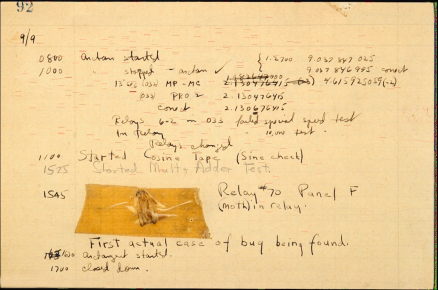 92
9/9
0800 antan started { 1.2700 9.037 847 025
1000 " stopped - antan ✓ 9.037 846 995 correct
13"uc (032) MP-MC 2.130476415 (-3) 4.615925059(-2)
(033) PRO 2 2.130476415
correct 2.130676415
Relays 6-2 in 033 failed special speed test
In relay " 10,000 test.
Relays changed
1100 Started Cosine Tape (Sine check)
1525 Started Mult+Adder Test.
1545 Relay #70 Panel F
(moth) in relay.
First actual case of bug being found.
1630 antangent started.
1700 closed down.